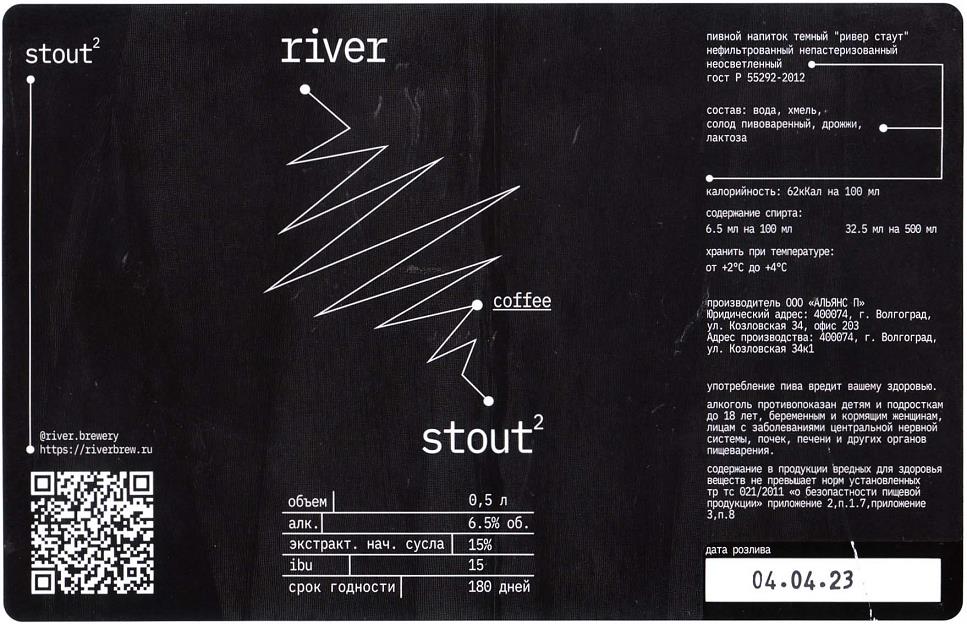 stout²
@river.brewery
https://riverbrew.ru
river
coffee
stout²
объем 0,5 л
алк. 6.5% об.
экстракт. нач. сусла 15%
ibu 15
срок годности 180 дней
пивной напиток темный "ривер стаут"
нефильтрованный непастеризованный
неосветленный
гост Р 55292-2012
состав: вода, хмель,
солод пивоваренный, дрожжи,
лактоза
калорийность: 62кКал на 100 мл
содержание спирта:
6.5 мл на 100 мл 32.5 мл на 500 мл
хранить при температуре:
от +2°C до +4°C
производитель ООО «АЛЬЯНС П»
Юридический адрес: 400074, г. Волгоград,
ул. Козловская 34, офис 203
Адрес производства: 400074, г. Волгоград,
ул. Козловская 34к1
употребление пива вредит вашему здоровью.
алкоголь противопоказан детям и подросткам
до 18 лет, беременным и кормящим женщинам,
лицам с заболеваниями центральной нервной
системы, почек, печени и других органов
пищеварения.
содержание в продукции вредных для здоровья
веществ не превышает норм установленных
тр тс 021/2011 «о безопастности пищевой
продукции» приложение 2,п.1.7,приложение
3,п.8
дата розлива
04.04.23